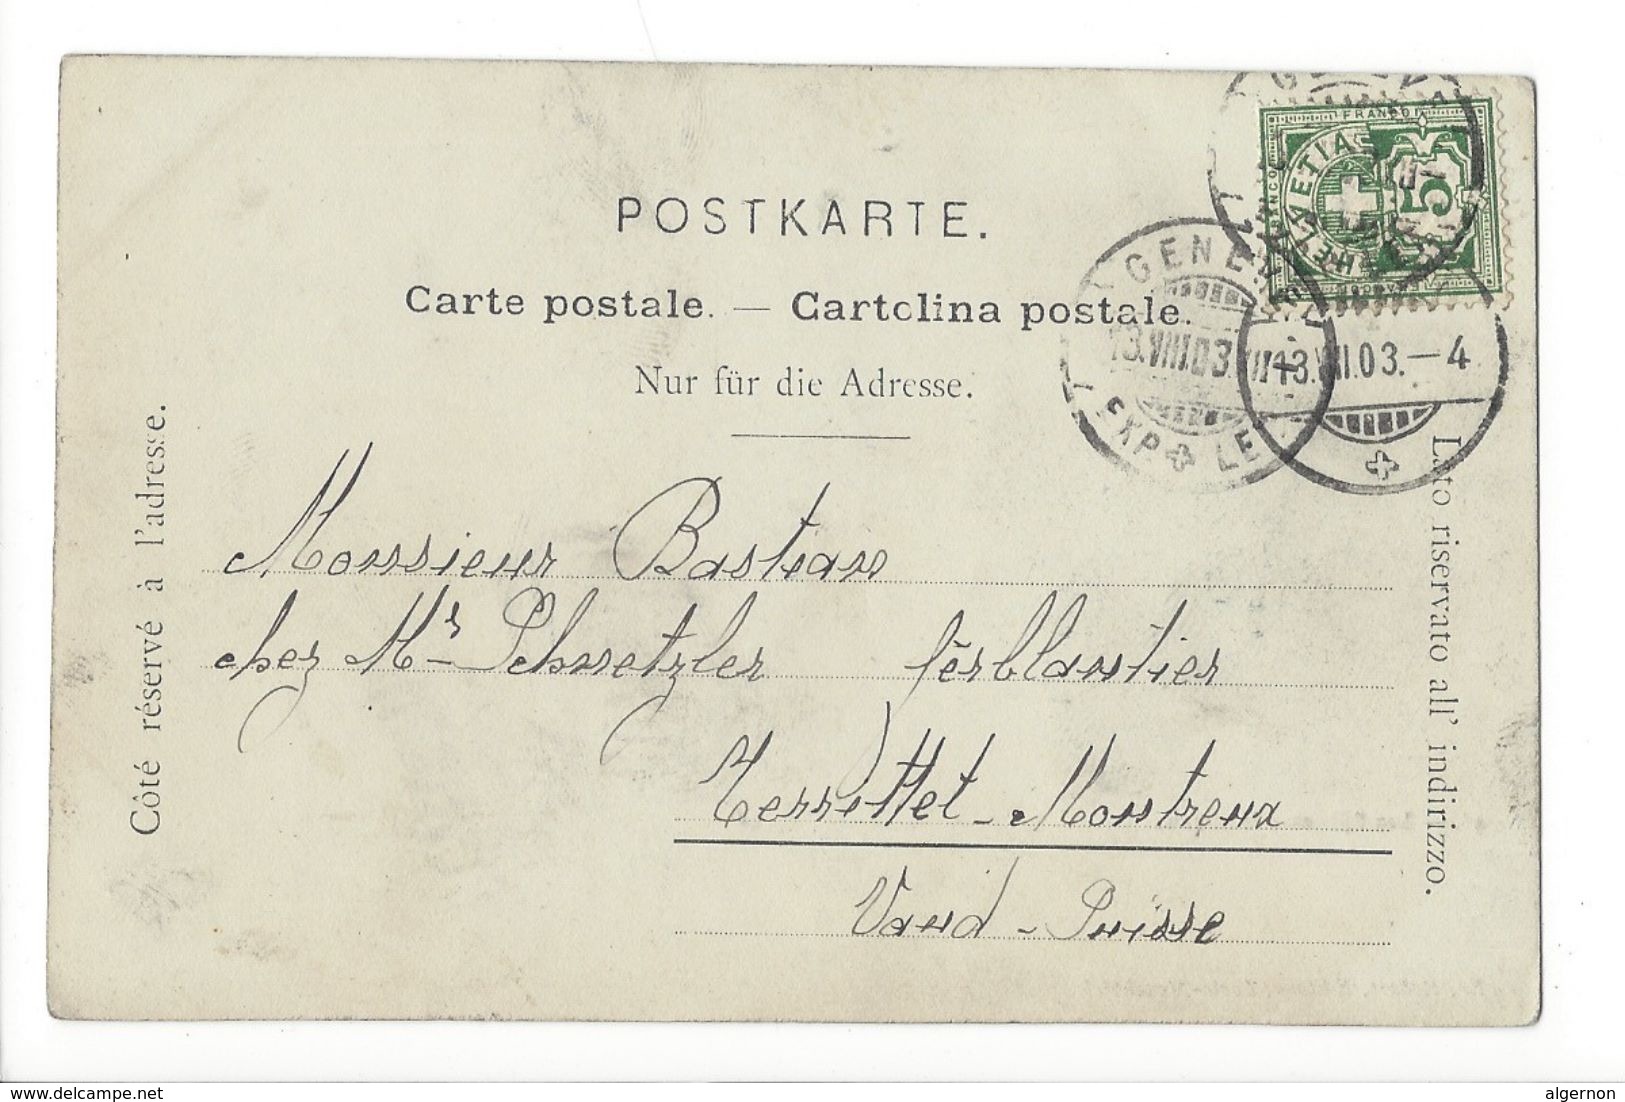 POSTKARTE.
Carte postale. — Cartolina postale.
Nur für die Adresse.
Côté réservé à l'adresse.
Lato riservato all' indirizzo.
FRANCO
HELVETIA
5
GENÈVE
13.VIII.03.
EXP. LE
13.VIII.03.—4
Monsieur Bastian
chez Mr Schmetzler férblantier
Territtet - Montreux
Vaud - Suisse
delcampe.net
algernon